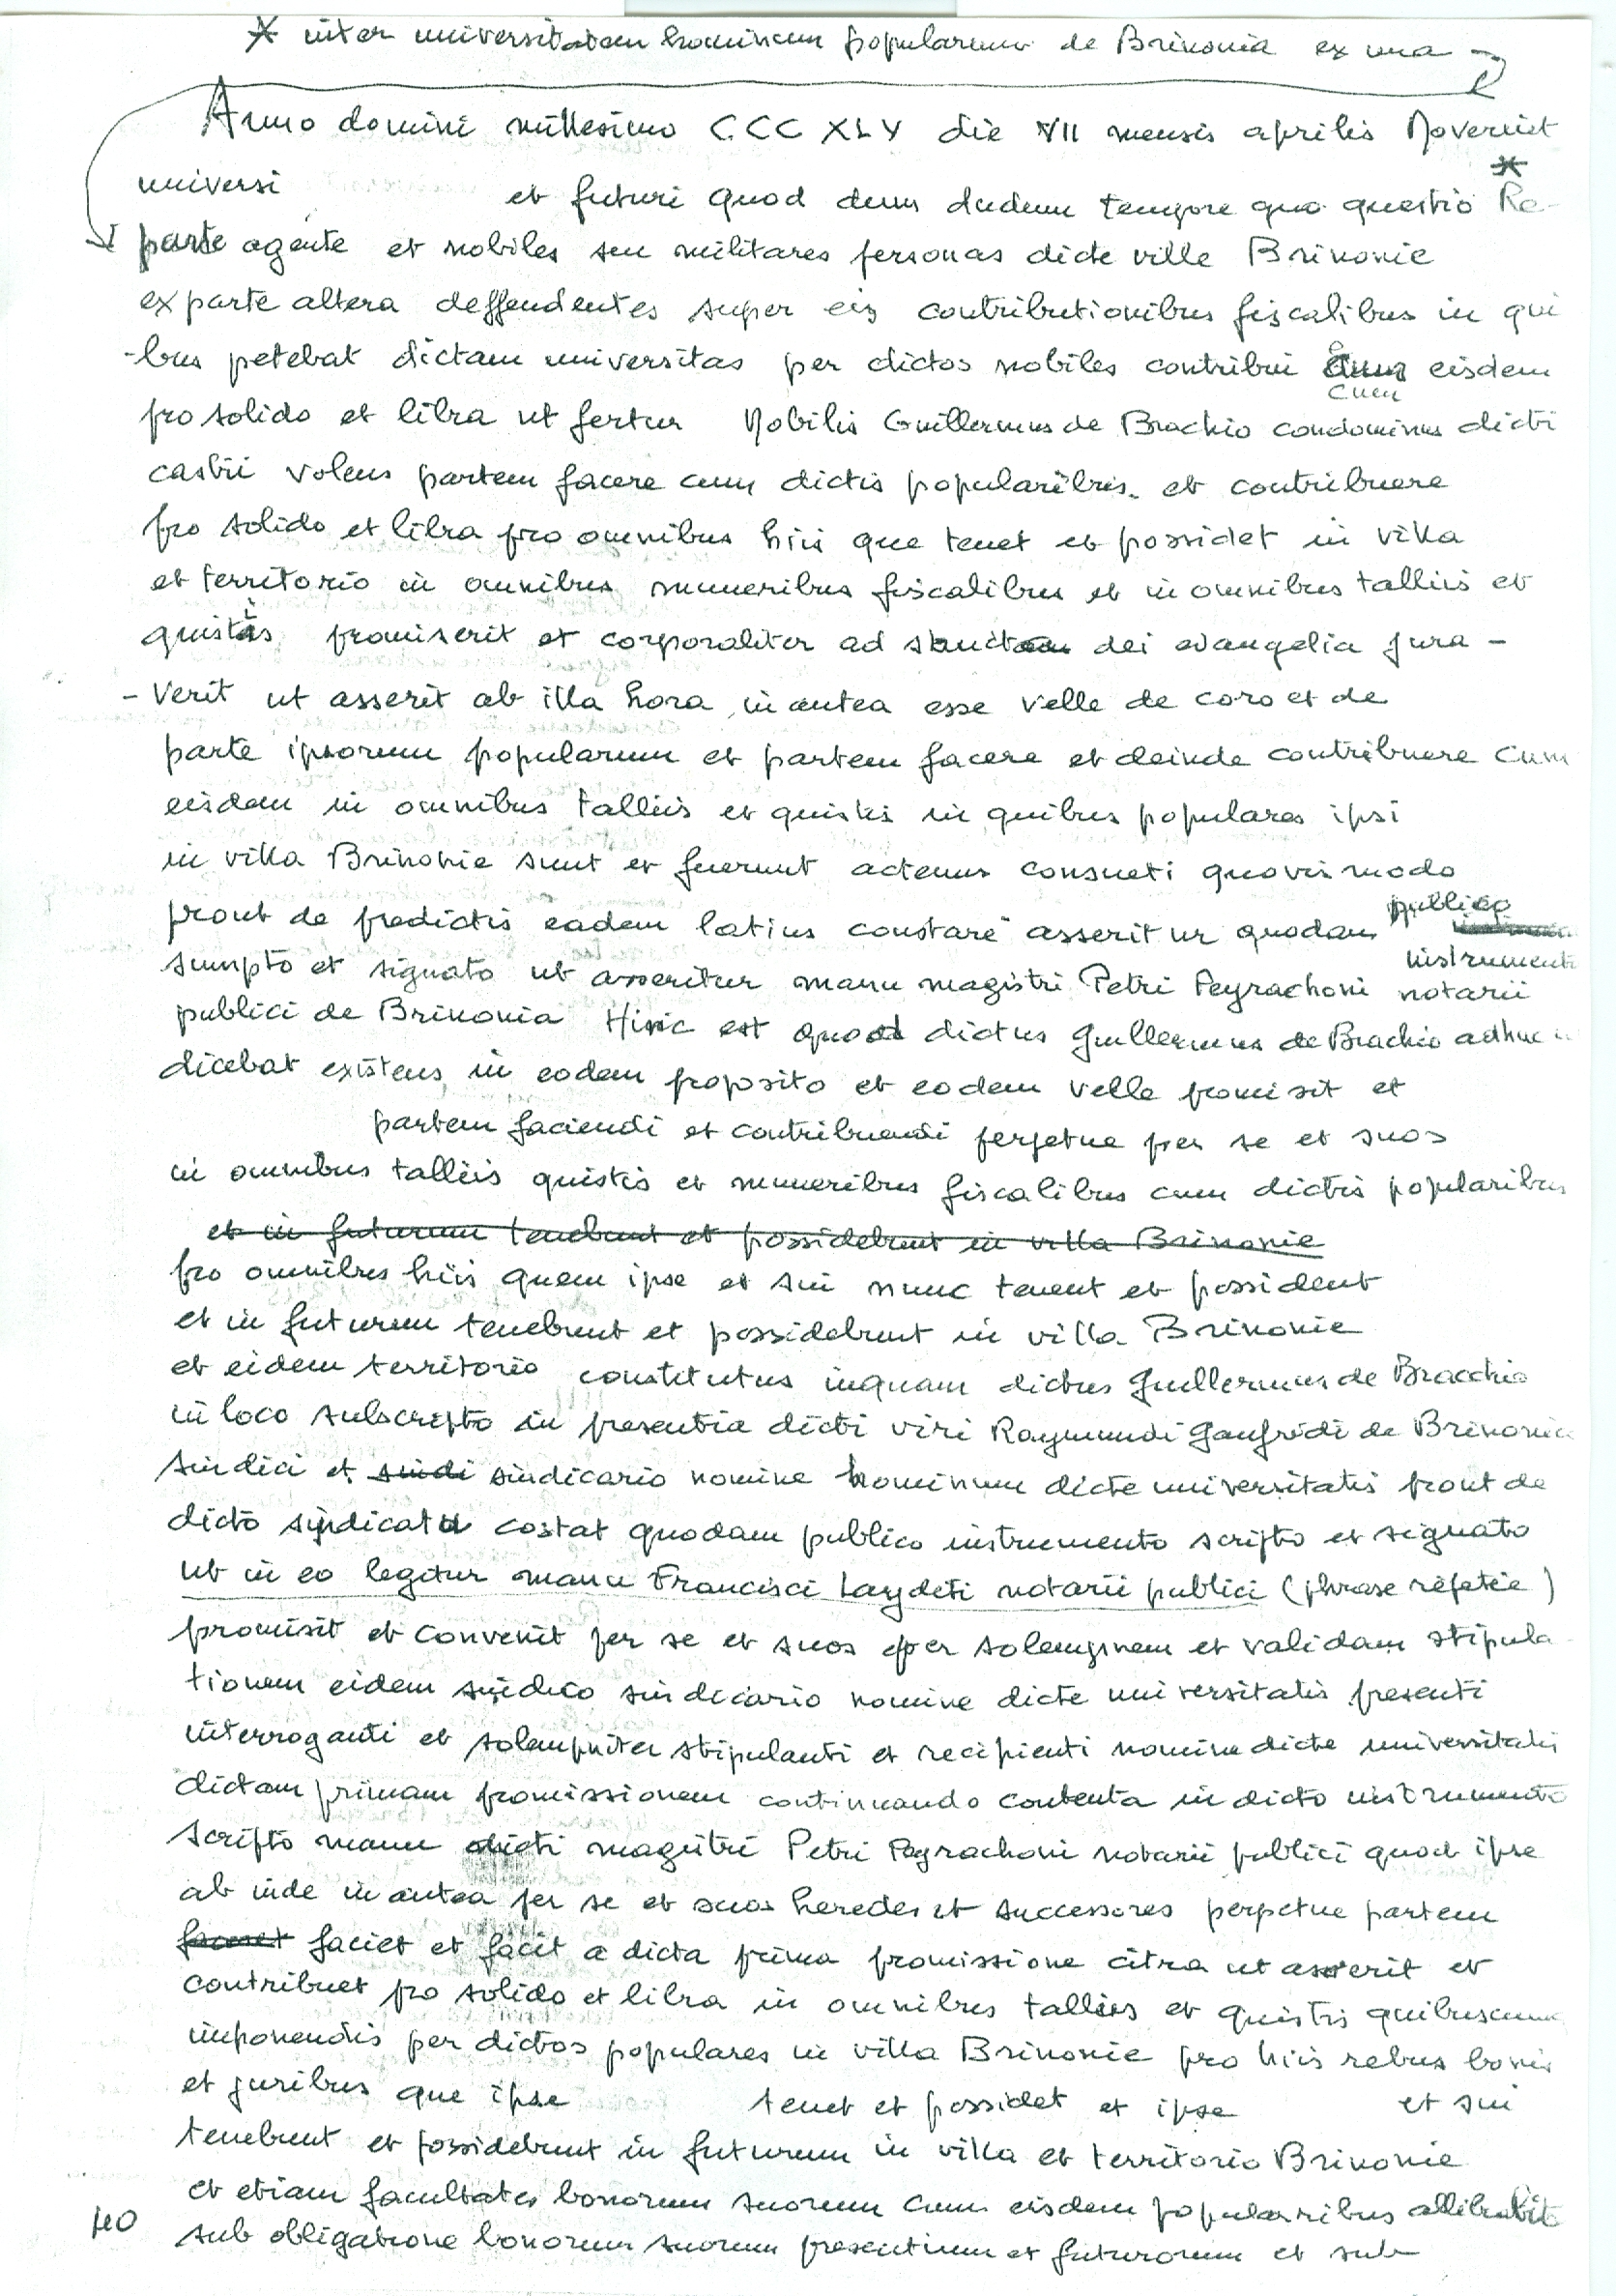 * inter universitatem hominum popularium de Brinonia ex una
Anno domini millesimo CCC XLV die VII mensis aprilis Noverint
universi et futuri quod dum dudum tempore quo questio * Re-
parte agente et nobiles seu militares personas dicte ville Brinonie
ex parte altera deffendentes super eis contributionibus fiscalibus in qui
-bus petebat dictam universitas per dictos nobiles contribui cum eisdem
pro solido et libra ut fertur Nobilis Guillermus de Brachio condominus dicti
castri volens partem facere cum dictis popularibus et contribuere
pro solido et libra pro omnibus hiis que tenet et possidet in villa
et territorio in omnibus muneribus fiscalibus et in omnibus talliis et
quistis promiserit et corporaliter ad sancta dei evangelia jura -
- verit ut asserit ab illa hora in antea esse velle de coro et de
parte ipsorum popularium et partem facere et deinde contribuere cum
eisdem in omnibus talliis et quistis in quibus populares ipsi
in villa Brinonie sunt et fuerunt actenus consueti quovis modo
prout de predictis eadem latius constare asseritur quodam publico instrumento
sumpto et signato ut asseritur manu magistri Petri Peyrachoni notarii
publici de Brinonia Hinc est quod dictus Guillermus de Brachio adhuc
dicebat existens in eodem proposito et eodem velle promisit et
partem faciendi et contribuendi perpetue per se et suos
in omnibus talliis quistis et muneribus fiscalibus cum dictis popularibus
et in futurum tenebunt et possidebunt in villa Brinonie
pro omnibus hiis quem ipse et sui nunc tenent et possident
et in futurum tenebunt et possidebunt in villa Brinonie
et eidem territorio constitutus inquam dictus Guillermus de Bracchio
in loco subscripto in presentia dicti viri Raymundi Gaufridi de Brinonia
sindici et sindi sindicario nomine hominum dicte universitatis prout de
dicto sindicatu costat quodam publico instrumento scripto et signato
ut in eo legitur manu Francisci Laydeti notarii publici (phrase répétée)
promisit et convenit per se et suos per solempnem et validam stipula
tionem eidem sindico sindicario nomine dicte universitatis presenti
interroganti et solempniter stipulanti et recipienti nomine dicte universitatis
dictam primam promissionem continuando contenta in dicto instrumento
scripto manu dicti magistri Petri Peyrachoni notarii publici quod ipse
ab inde in antea per se et suos heredes et successores perpetue partem
faceret faciet et facit a dicta prima promissione citra ut asserit et
contribuet pro solido et libra in omnibus talliis et quistis quibuscum
imponendis per dictos populares in villa Brinonie pro hiis rebus bonis
et juribus que ipse tenet et possidet et ipse et sui
tenebunt et possidebunt in futurum in villa et territorio Brinonie
et etiam facultates bonorum suorum cum eisdem popularibus allibrabit
sub obligatione bonorum suorum presentium et futurorum et sub